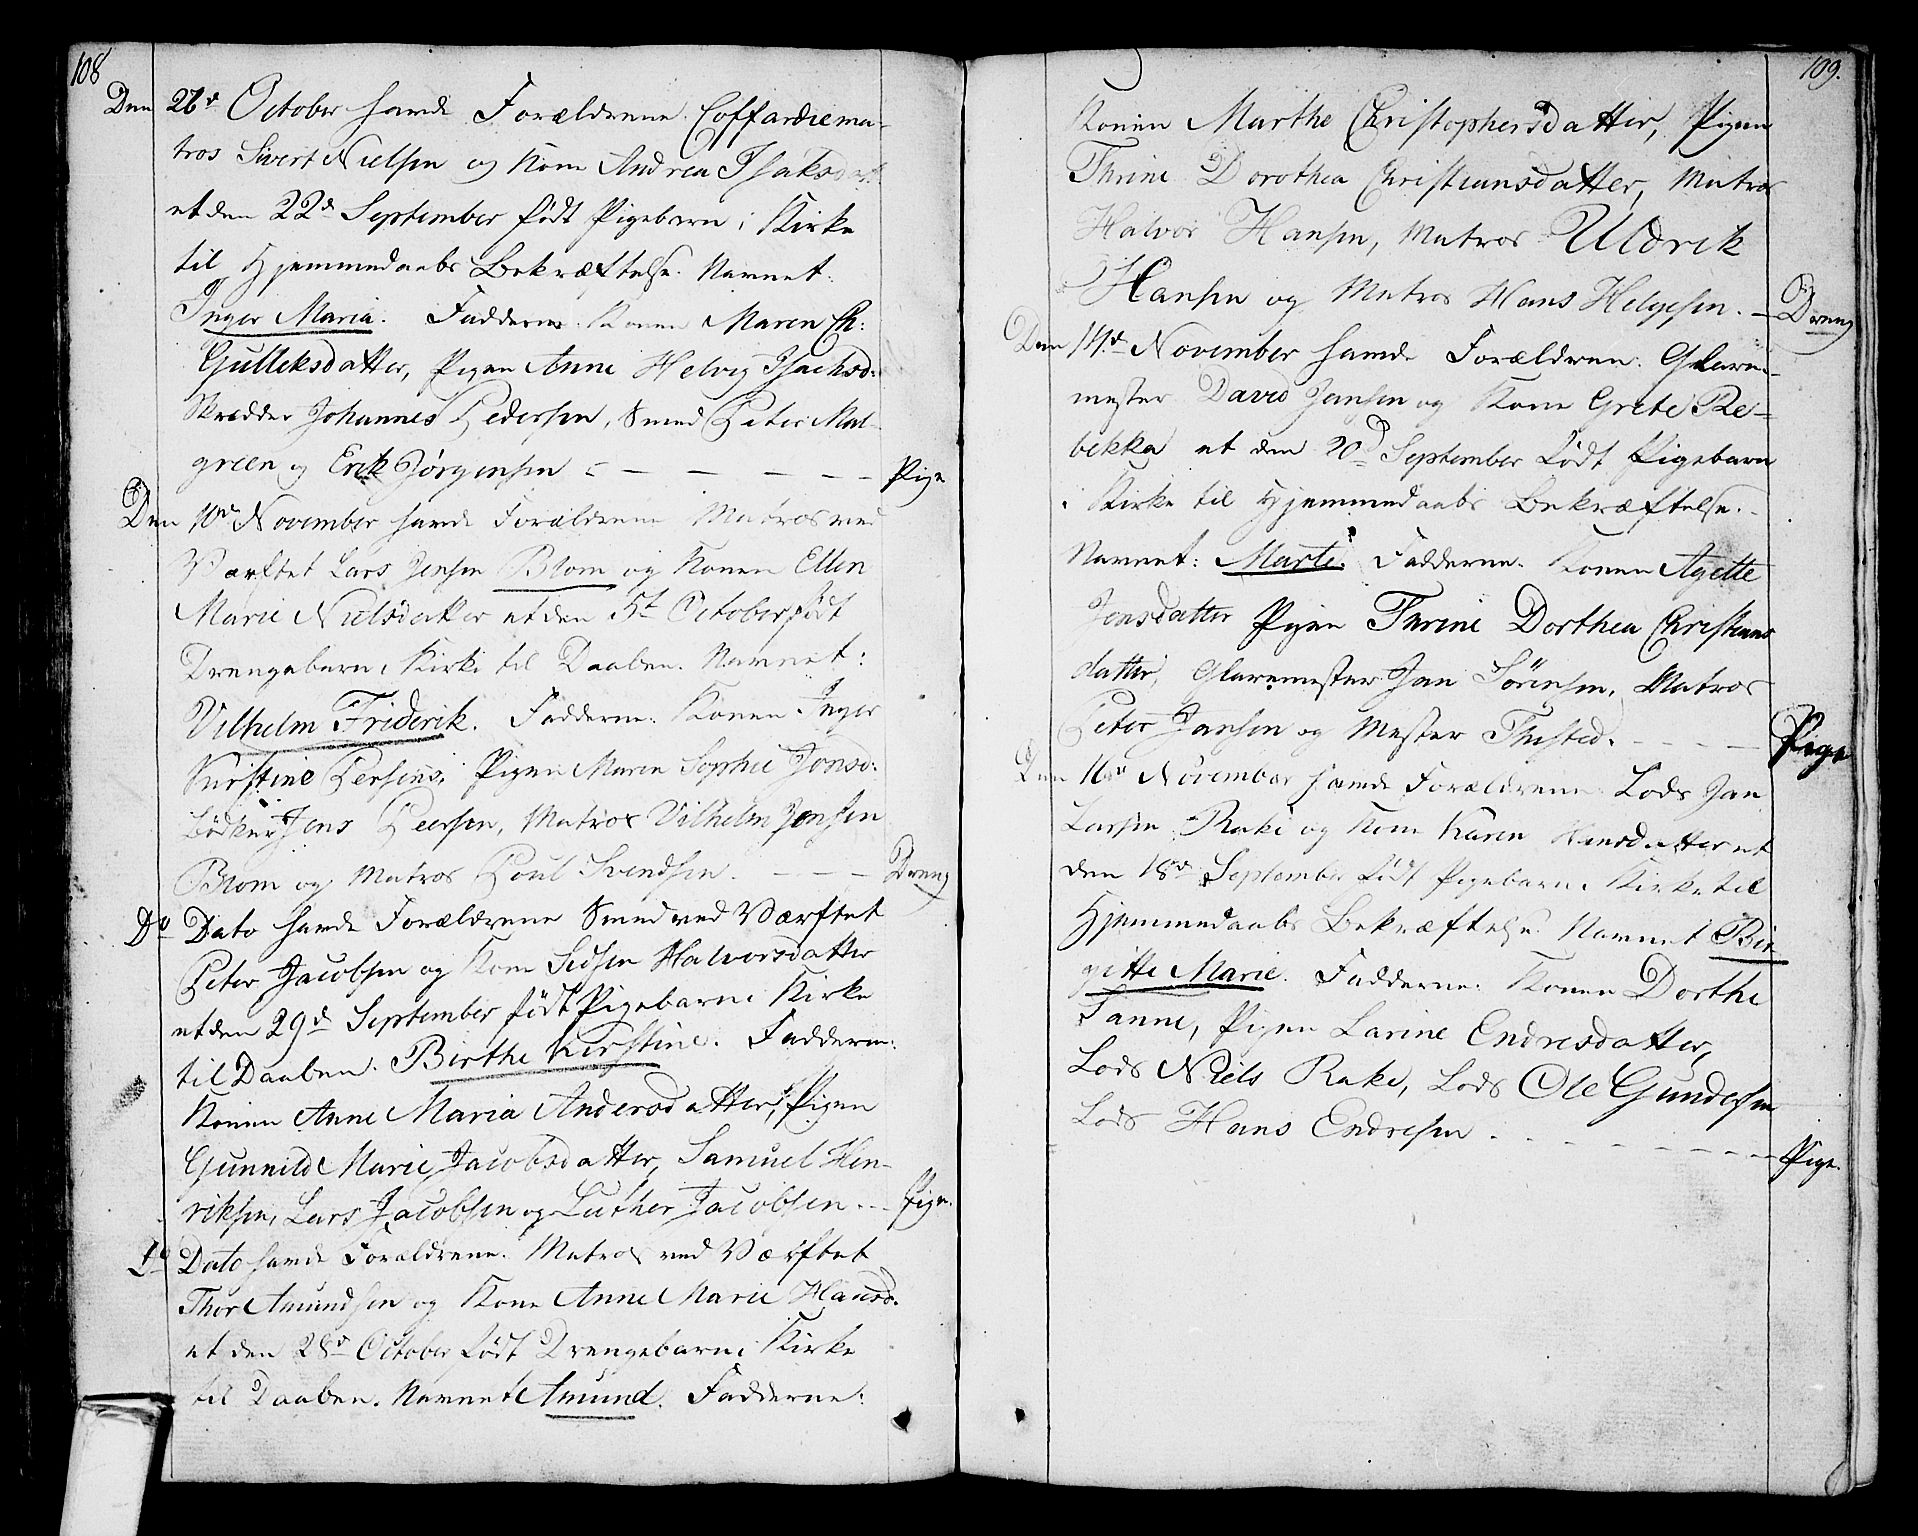 108
Den 26de October havde Forældrene Coffardiema-
tros Sivert Nielsen og Kone Andrea Isaksdatt.
et den 22de September født Pigebarn i Kirke
til Hjemmedaabs Bekræftelse. Navnet:
Inger Maria. Fadderne. Konen Maren Ch:
Gulleksdatter, Pigen Anne Helvig Isachsd:
Skrædder Johannes Pedersen, Smed Peter Mal-
green og Erik Jørgensen - - - - - Pige
Den 10de November havde Forældrene Matros ved
Værftet Lars Jensen Blom og Konen Ellen
Marie Nielsdatter et den 5te October født
Drengebarn i Kirke til Daaben. Navnet:
Vilhelm Friderik. Fadderne. Konen Inger
Kirstine Persens, Pigen Maren Sophie Jonsd:
Bødker Jens Peersen, Matros Vilhelm Jensen
Blom og Matros Poul Svendsen. - - - Dreng
Do Dato havde Forældrene Smed ved Værftet
Peter Jacobsen og Kone Sidsen Halvorsdatter
et den 29de September født Pigebarn i Kirke
til Daaben. Birthe Kirstine. Fadderne:
Konen Anne Maria Andersdatter, Pigen
Gunnild Marie Jacobsdatter, Samuel Hen-
riksen, Lars Jacobsen og Luther Jacobsen. - - Pige.
Do Dato havde Forældrene. Matros ved Værftet
Thor Amundsen og Kone Anne Marie Hansd.
et den 28de October født Drengebarn i Kirke
til Daaben. Navnet Amund. Fadderne:
109.
Konen Marthe Christophersdatter, Pigen
Thrine Dorothea Christiansdatter, Matros
Halvor Hansen, Matros Uldrik
Hansen og Matros Hans Helgesen. - Dreng
Den 14de November havde Forældrene. Glarme-
mester David Jansen og Kone Grete Re-
bekka et den 20de September født Pigebarn
i Kirke til Hjemmedaabs Bekræftelse. -
Navnet: Marte. Fadderne. Konen Agette
Jonsdatter Pigen Thrine Dorthea Christians
datter, Glaremester Jan Sörensen, Matros
Peter Jansen og Mester Thisted. - - - - Pige
Den 16de November havde Forældrene Lods Jan
Larsen Rake og Kone Karen Hansdatter et
den 18de September født Pigebarn i Kirke til
Hjemmedaabs Bekræftelse Navnet Bir-
gitte Marie. Fadderne. Konen Dorthe
Fanne, Pigen Larine Endresdatter,
Lods Niels Rake, Lods Ole Gundersen
Lods Hans Endresen. - - - - - - - Pige.